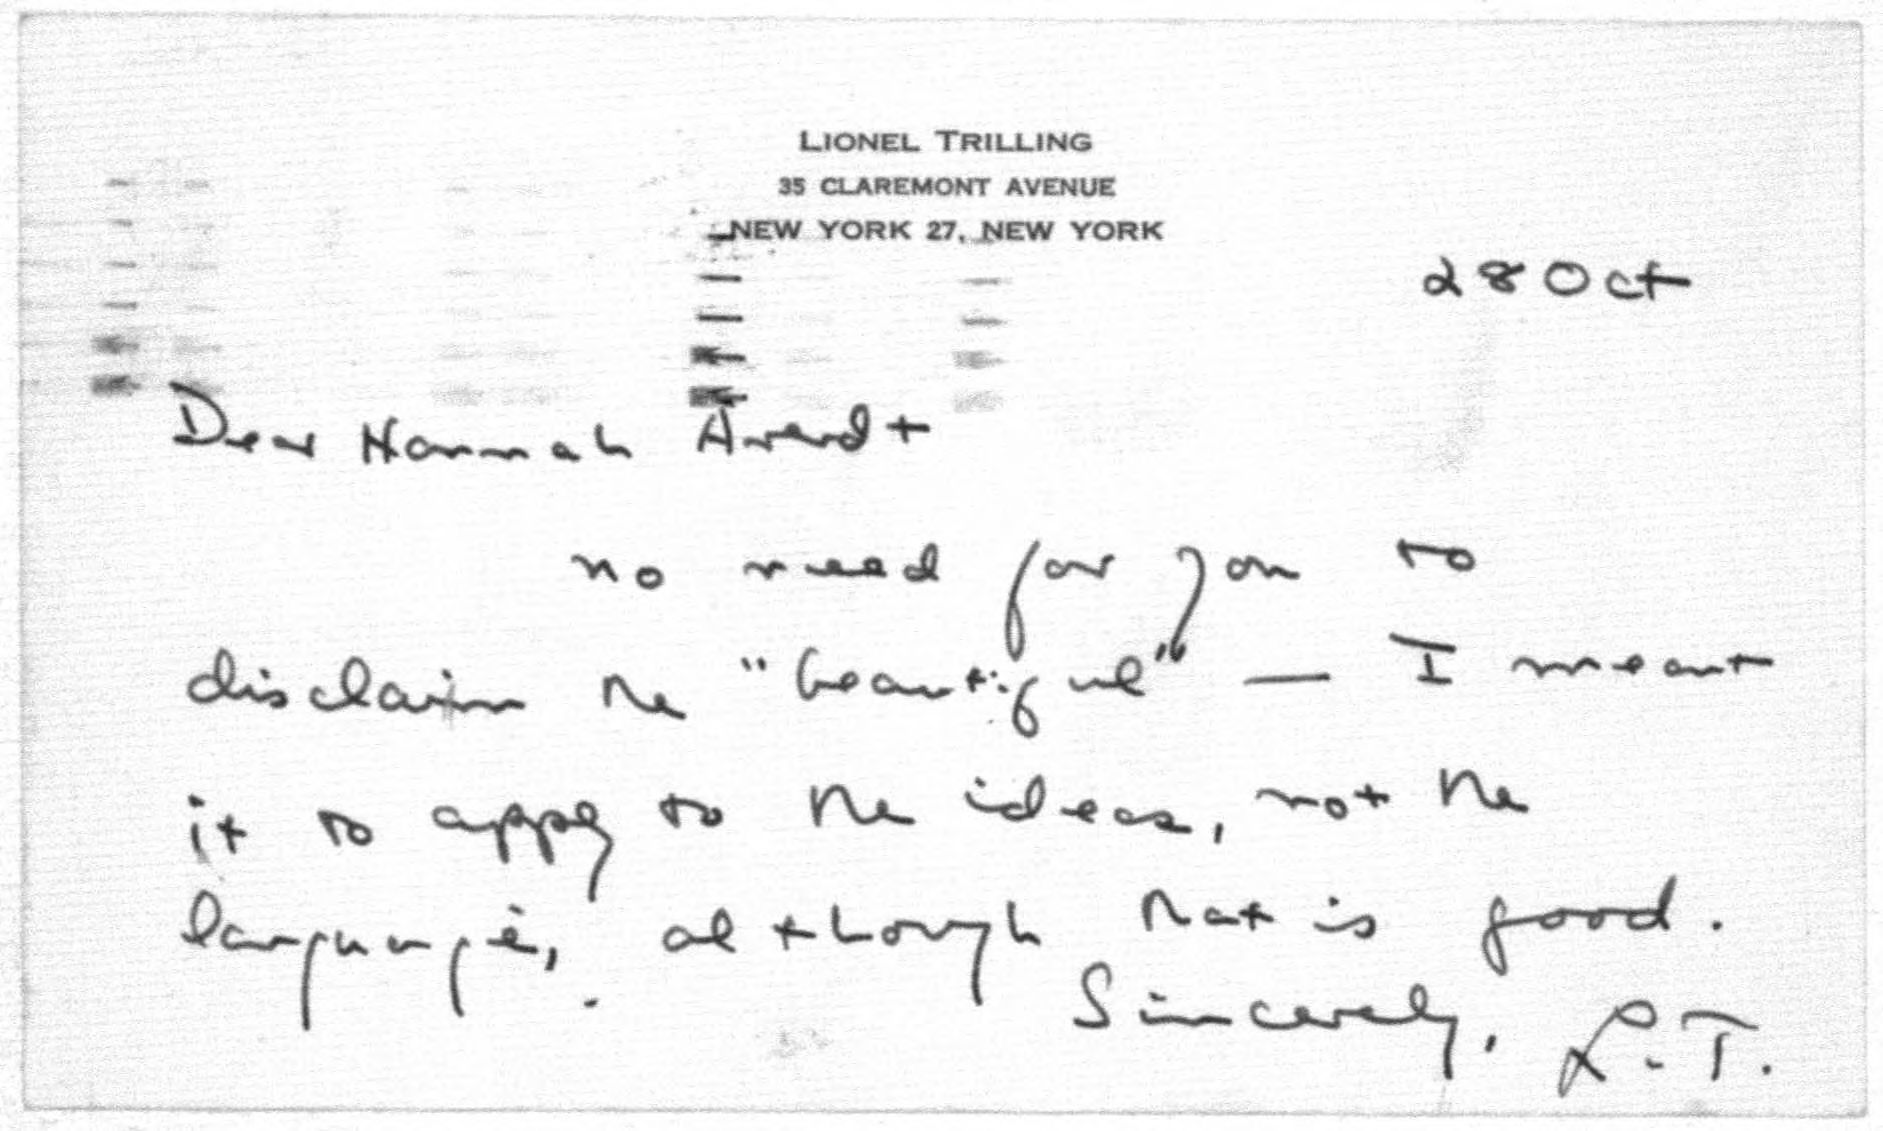 LIONEL TRILLING
35 CLAREMONT AVENUE
NEW YORK 27, NEW YORK
28 Oct
Dear Hannah Arendt
no need for you to
disclaim the "beautiful" — I meant
it to apply to the ideas, not the
language, although that is good.
Sincerely, L.T.